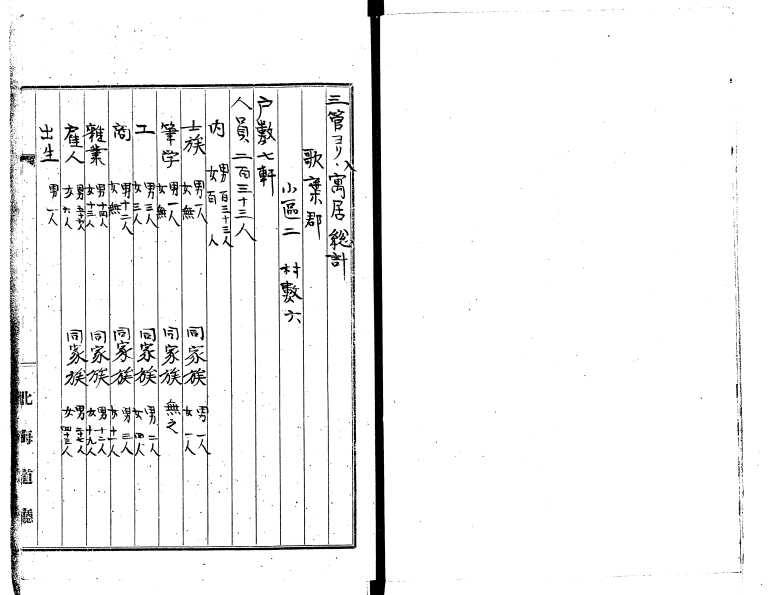 三管ヨリ入寓居総計
歌棄郡
小區二 村数六
户数七軒
人員二百三十三人
内 男百三十三人 女百人
士族 男一人 女無 同家族 男一人 女一人
筆学 男一人 女無 同家族 無之
工 男三人 女三人 同家族 男二人 女四人
商 男十二人 女無 同家族 男三人 女十一人
雜業 男十四人 女十三人 同家族 男十二人 女十九人
雇人 男 女六人 同家族 男 女四十三人
出生 男一人
北海道廳